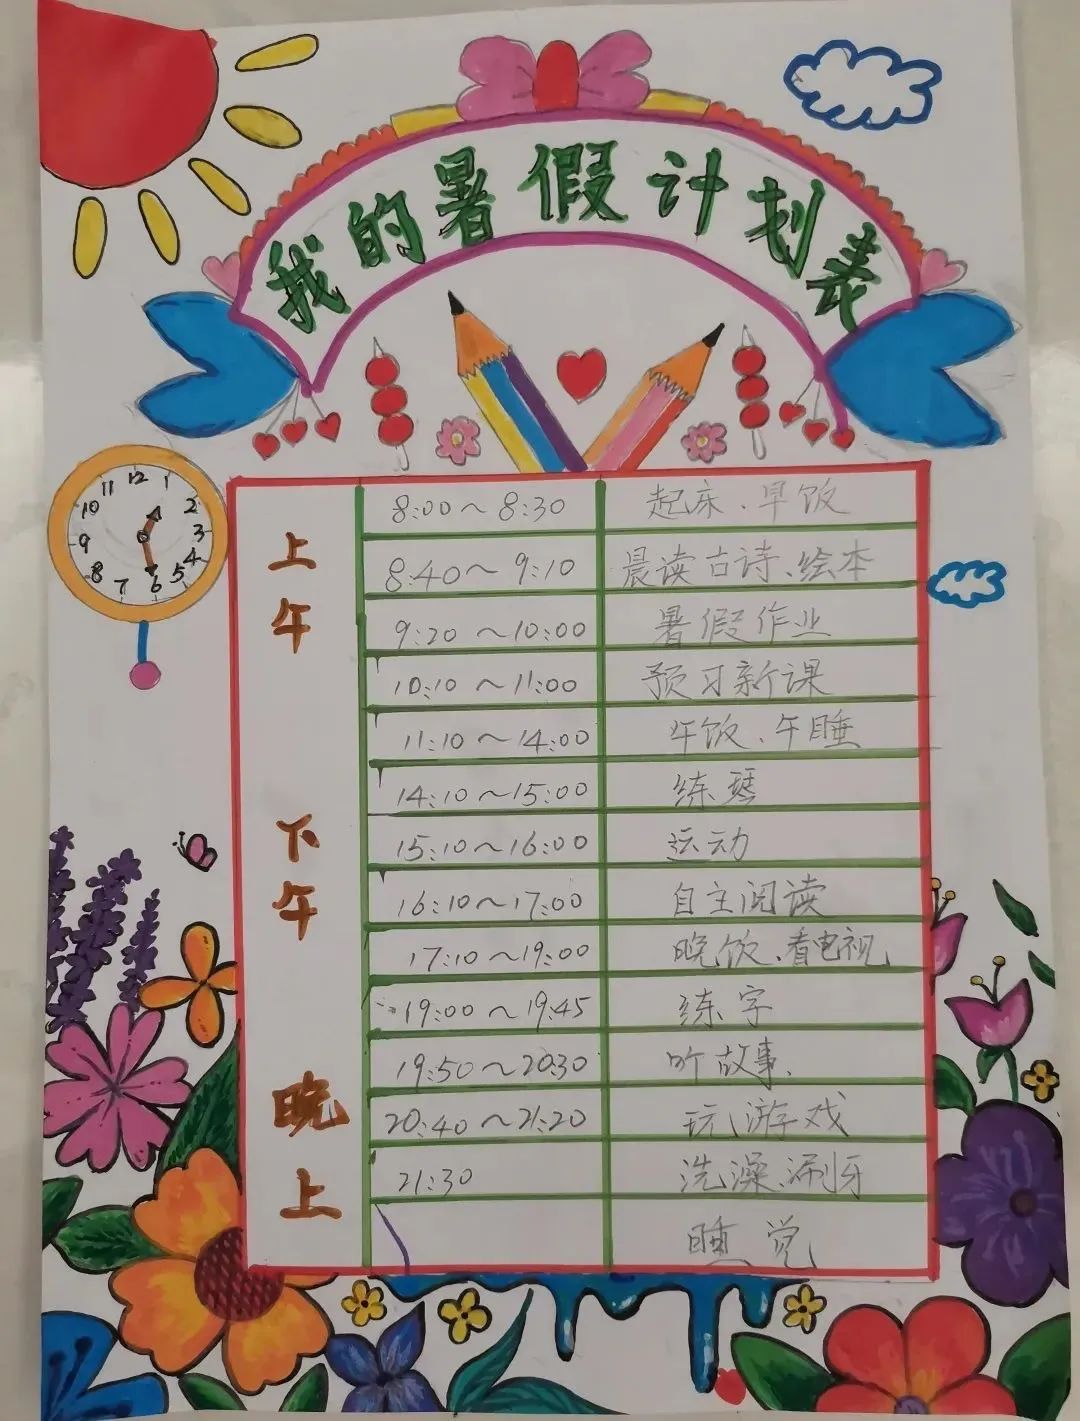 我的暑假计划表
12
1
2
3
4
5
6
7
8
9
10
11
上午
8:00～8:30 起床、早饭
8:40～9:10 晨读古诗、绘本
9:20～10:00 暑假作业
10:10～11:00 预习新课
11:10～14:00 午饭、午睡
下午
14:10～15:00 练琴
15:10～16:00 运动
16:10～17:00 自主阅读
17:10～19:00 晚饭、看电视
晚上
19:00～19:45 练字
19:50～20:30 听故事、
20:40～21:20 玩游戏
21:30 洗澡、涮牙
睡觉